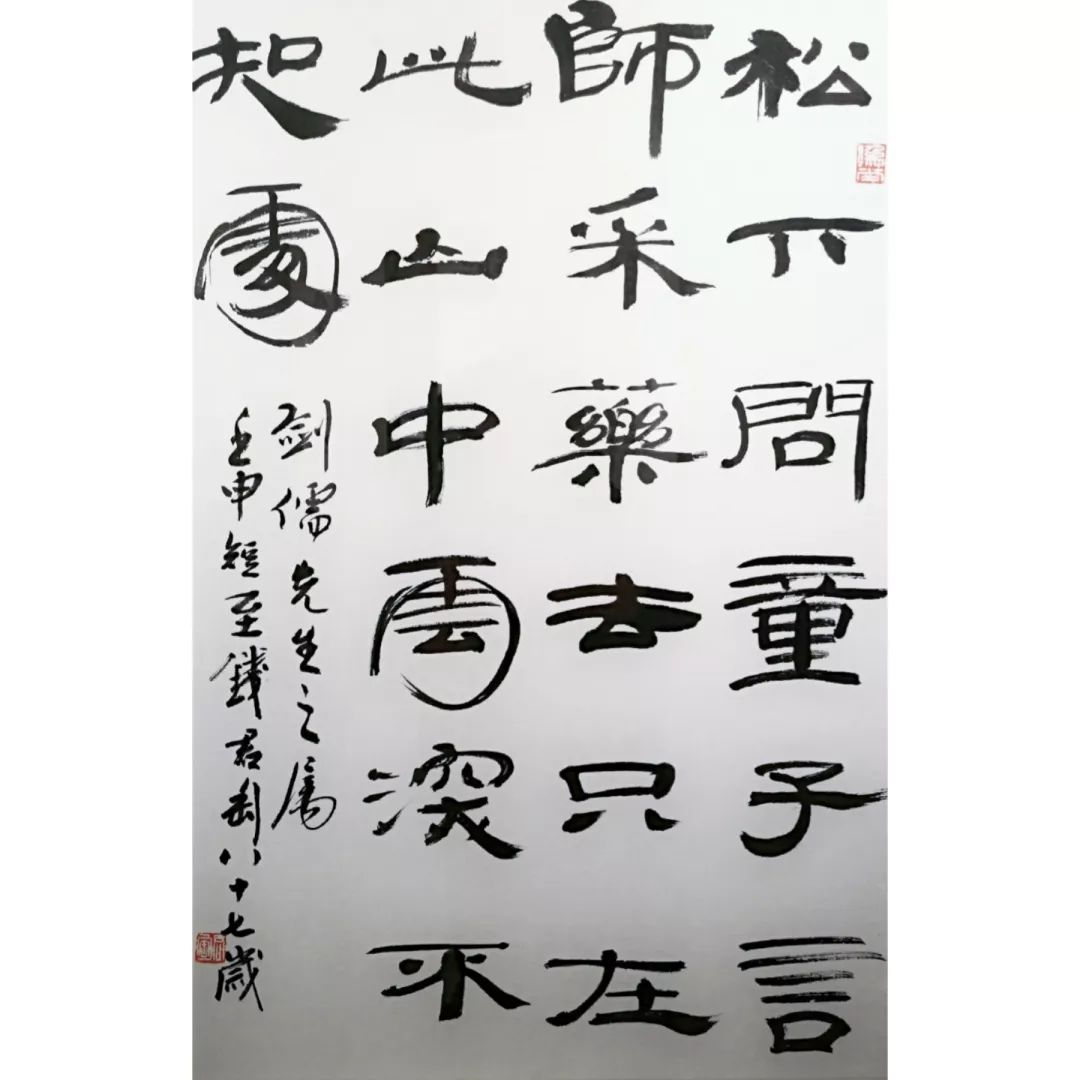 松下問童子言
師采藥去只在
此山中雲深不
知處
劍儒先生之屬
壬申短至錢君匋八十七歲